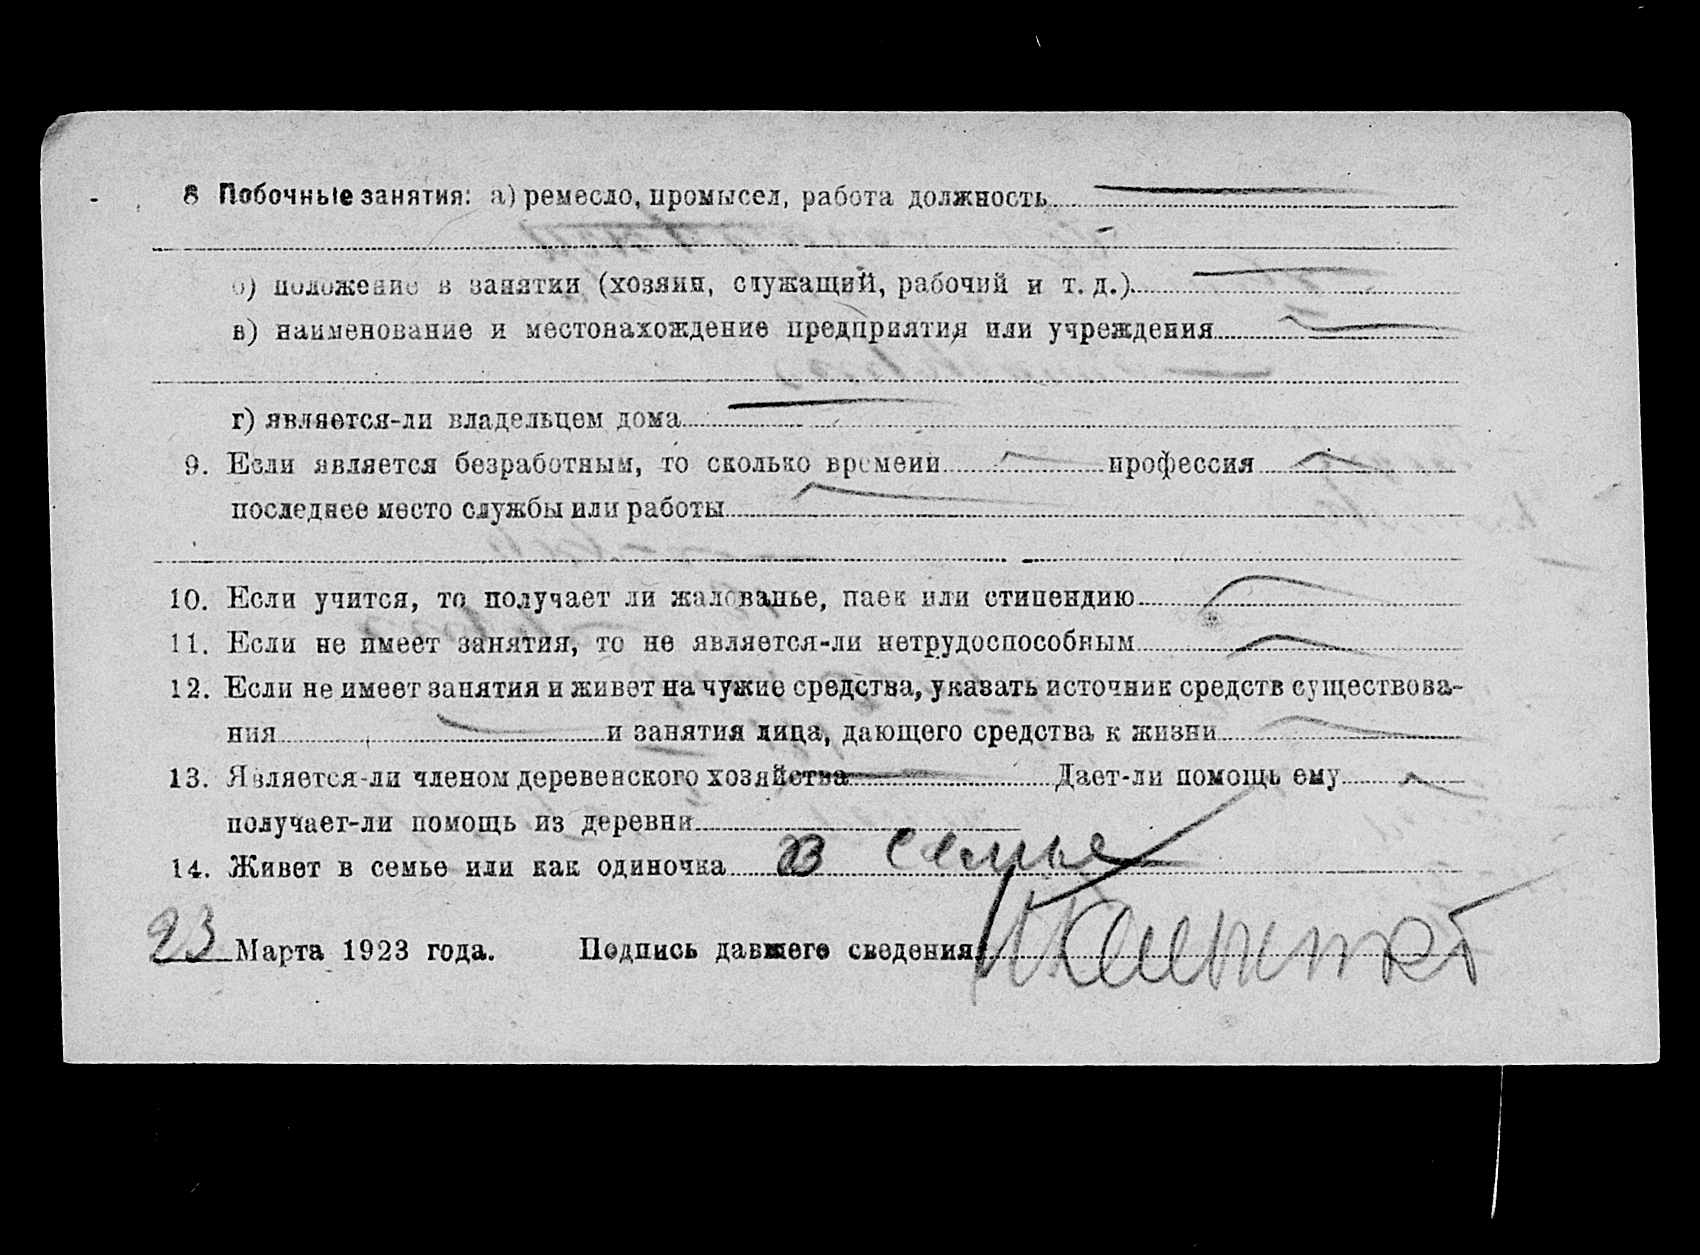 8 Побочные занятия: а) ремесло, промысел, работа должность
б) положение в занятии (хозяин, служащий, рабочий и т. д.)
в) наименование и местонахождение предприятия или учреждения
г) является-ли владельцем дома
9. Если является безработным, то сколько времени профессия
последнее место службы или работы
10. Если учится, то получает ли жалованье, паек или стипендию
11. Если не имеет занятия, то не является-ли нетрудоспособным
12. Если не имеет занятия и живет на чужие средства, указать источник средств существова-
ния и занятия лица, дающего средства к жизни
13. Является-ли членом деревенского хозяйства Дает-ли помощь ему
получает-ли помощь из деревни
14. Живет в семье или как одиночка В семье
23 Марта 1923 года. Подпись давшего сведения